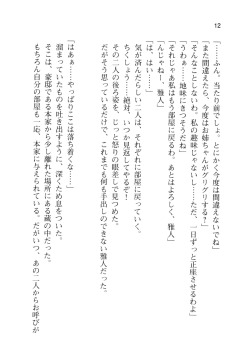 12
「……ふん、当たり前でしょ。とにかく今度は間違えないでね」
「また間違えたら、今度はお姉ちゃんがグリグリする？」
「そんなことしないわ。私の趣味じゃないし……ただ、一日ずっと正座させるわよ」
「うわぁ……地味にきつそうだね」
「それじゃあ私はもう部屋に戻るわ。あとはよろしく、雅人」
「んじゃねー、雅人」
気が済んだらしい二人は、それぞれに部屋に戻っていく。
ちくしょう……絶対、いつか見返してやるぞ！
その二人の後ろ姿を、じっと怒りの眼差しで見つめた。
だがそう思っているだけで、これまで何も手出しのできない雅人だった。
「はぁぁ……やっぱりここは落ち着くな……」
溜まっていたものを吐き出すように、深くため息をついた。
そこは、豪邸である本家から少し離れた場所にある蔵の中だった。
もちろん自分の部屋も一応、本家に与えられている。だがいつ、あの二人からお呼びが